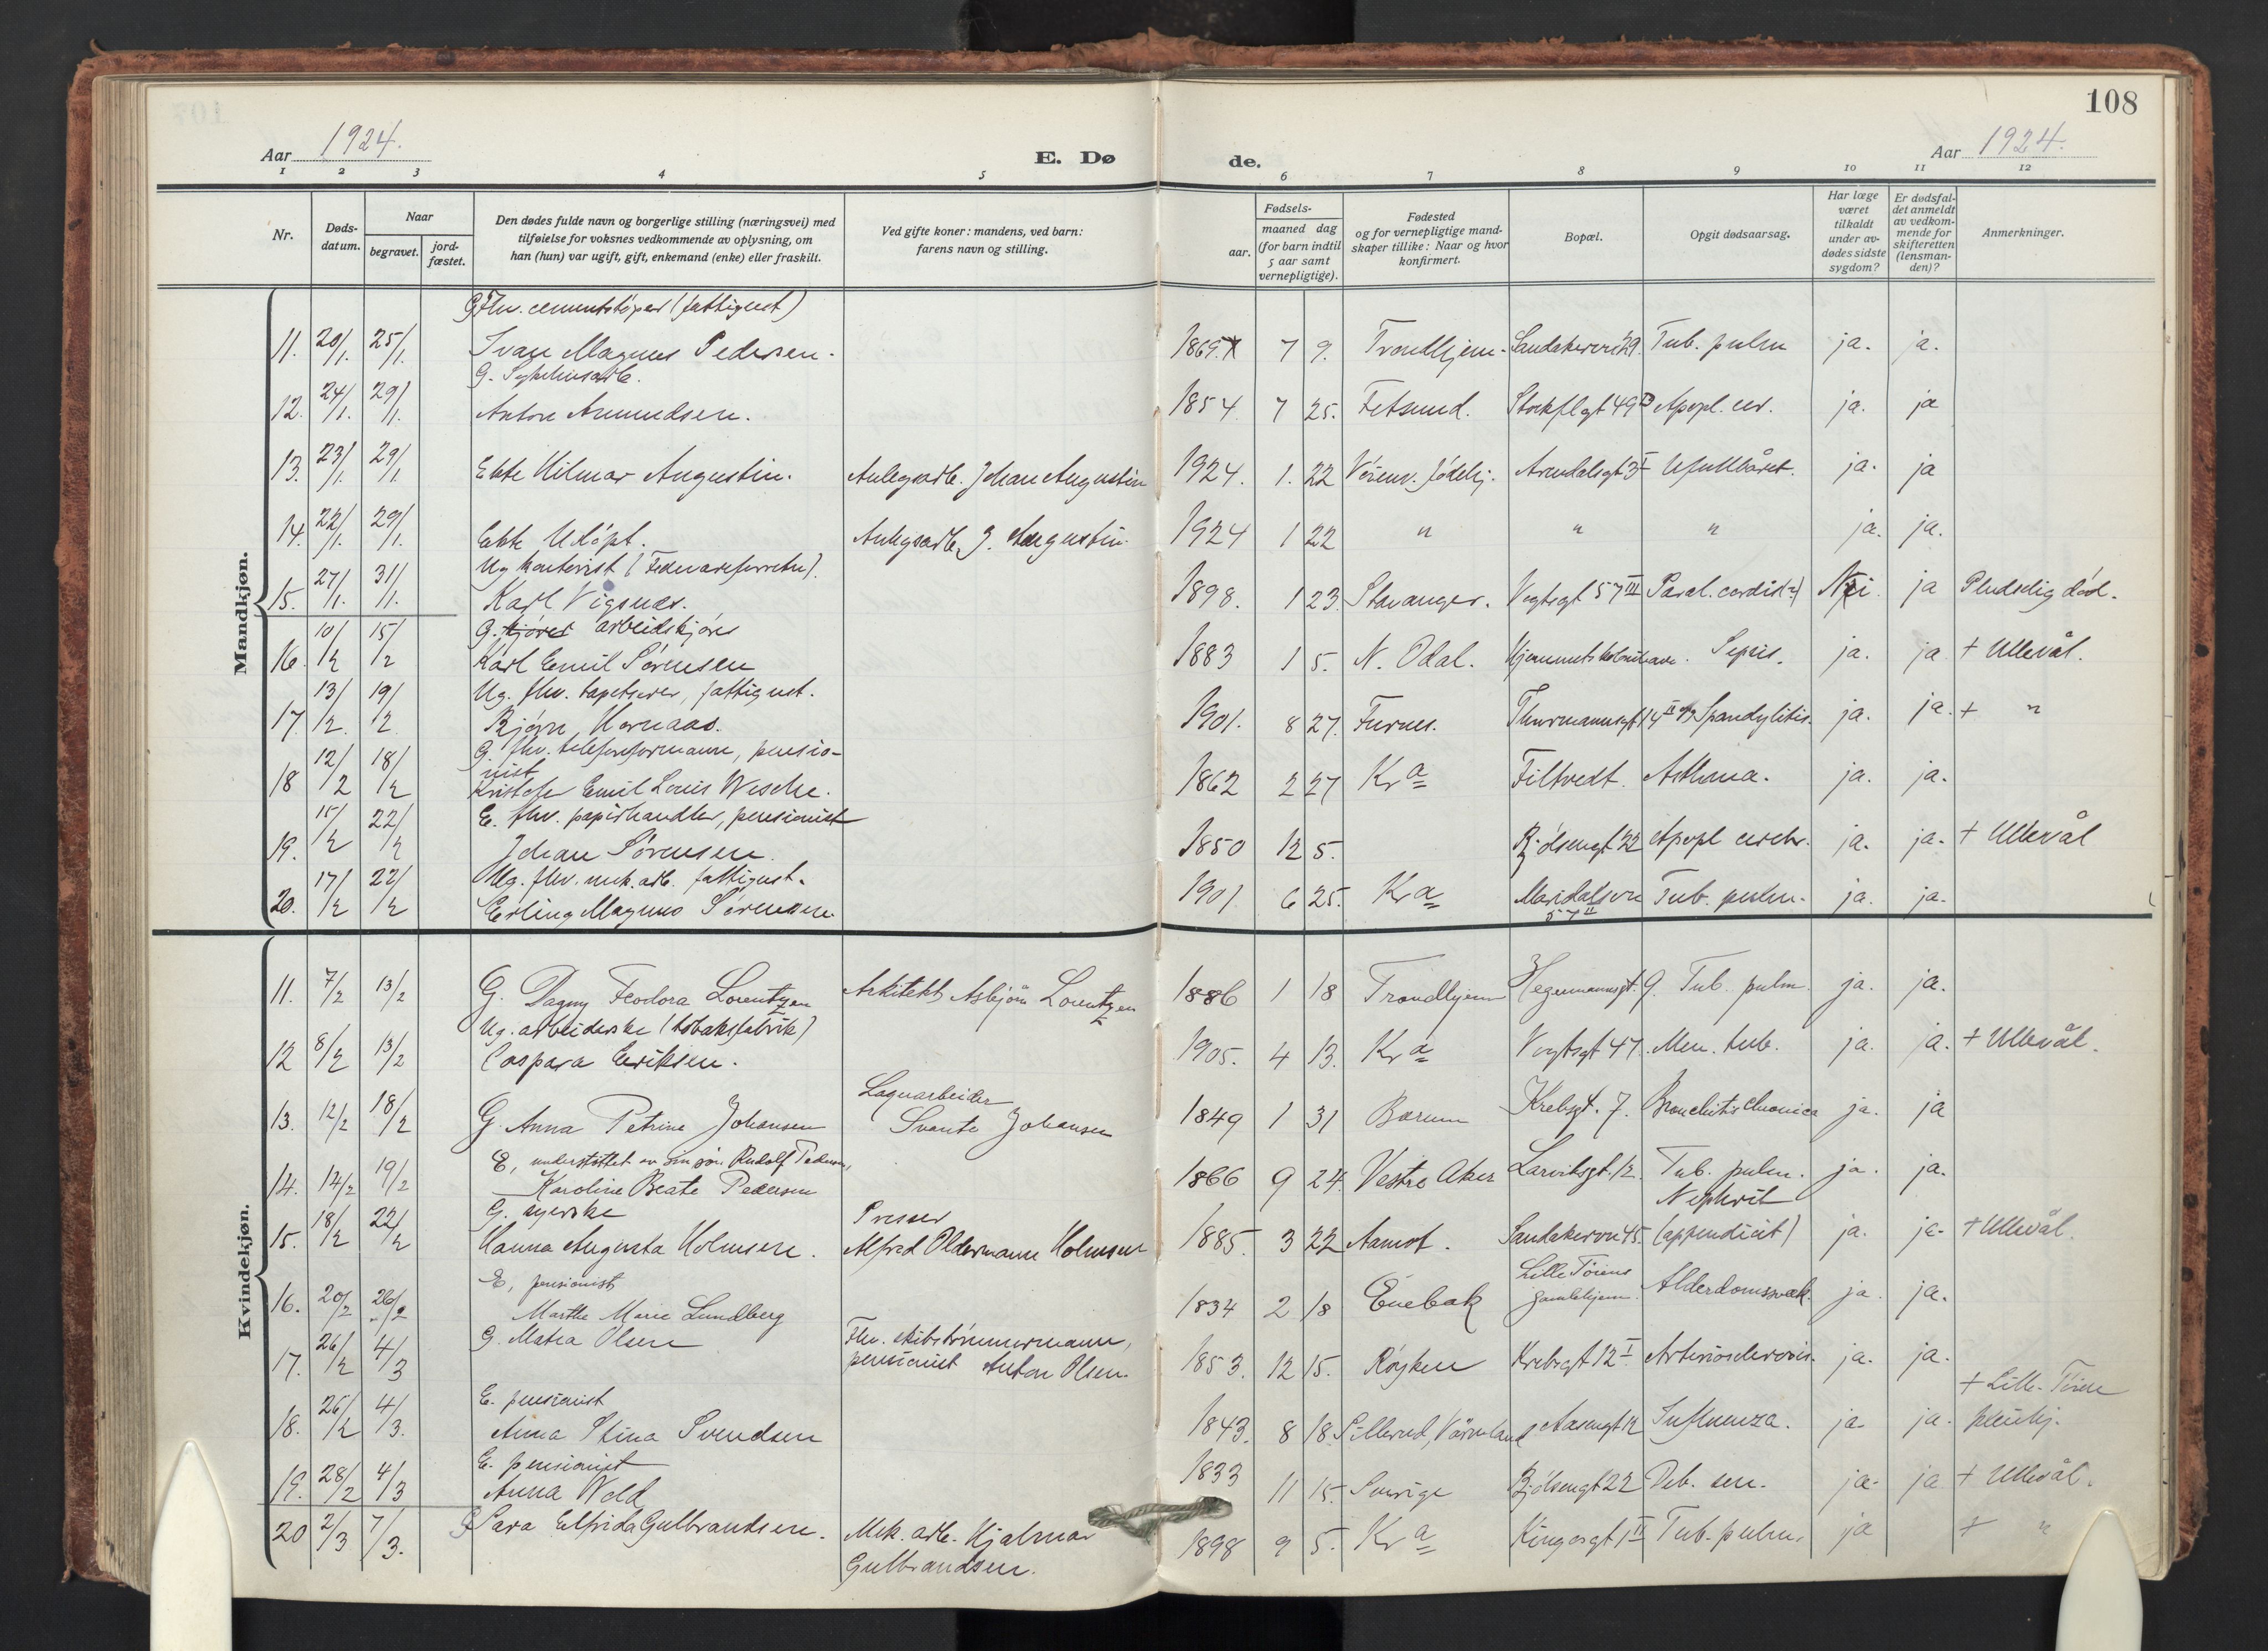 108
Aar 1924.
E. Dø de.
Aar 1924.
1 2 3 4 5 6 7 8 9 10 11 12
Nr.
Døds-
datum.
Naar
begravet.
jord-
fæstet.
Den dødes fulde navn og borgerlige stilling (næringsvei) med
tilføielse for voksnes vedkommende av oplysning, om
han (hun) var ugift, gift, enkemand (enke) eller fraskilt.
Ved gifte koner: mandens, ved barn:
farens navn og stilling.
Fødsels-
aar.
maaned dag
(for barn indtil
5 aar samt
vernepligtige).
Fødested
og for vernepligtige mand-
skaper tillike: Naar og hvor
konfirmert.
Bopæl.
Opgit dødsaarsag.
Har læge
været
tilkaldt
under av-
dødes sidste
sygdom?
Er dødsfal-
det anmeldt
av vedkom-
mende for
skifteretten
(lensman-
den)?
Anmerkninger.
Mandkjøn.
G. Fhv. cementstøper (fattigunst)
11. 20/1. 25/1. Ivan Magnus Pedersen. 1869 7 9. Trondhjem. Sandakervei 29. Tub. pulm ja. ja.
G. Sykehusarb.
12. 24/1. 29/1. Anton Amundsen. 1854. 7 25. Fetsund. Stockflgt 49 Apopl. cer. ja. ja
13. 23/1. 29/1. Ekte Hilmar Augustin. Anlegsarb. Johan Augustin 1924. 1. 22 Vørienv. fødehj. Arendalsgt 3 I Ufullbåret. ja. ja
14. 22/1. 29/1. Ekte Udøpt. Anlegsarb. J. Augustin. 1924 1 22 " " " ja. ja.
Ug. kontorist (Fedevareforretn).
15. 27/1. 31/1. Karl Vigsnes. 1898. 1 23. Stavanger. Vogtsgt 57 III Paral. cordis (?) Nei. ja Pludselig død.
G. kjører arbeidskjører
16. 10/2 15/2 Karl Emil Sørensen 1883 1 5. N. Odal. Hjemmets Kolonihave. Sepsis. ja. ja + Ullevål.
Ug. fhv. tapetserer, fattigunst.
17. 13/2. 19/2 Bjørn Hornaas. 1901. 8 27. Furnes. Thurmannsgt 14 II Spondylitis. ja. ja. + "
G. fhv. telefonformann, pensio-
nist
18 12/2 18/2 Kristofer Emil Louis Wesche. 1862 2 27 Kra Filtvedt. Asthma. ja. ja.
E. fhv. papirhandler, pensionist
19. 15/2 22/2 Johan Sørensen. 1850 12 5. Bjølsengt 22 Apopl cerebr. ja. ja. + Ullevål
Ug. fhv. mek. arb. fattigunst.
20. 17/2 22/2 Erling Magnus Sørensen. 1901. 6 25. Kra Maridalsvn Tub. pulm. ja. ja.
57 II
Kvindekjøn.
11. 7/2 13/2 G. Dagny Feodora Lorentzen Arkitekt Asbjørn Lorentzen 1886 1 18 Trondhjem Hegermannsgt. 9. Tub. pulm. ja. ja.
Ug. arbeiderske (tobaksfabrik)
12 8/2 13/2 Caspara Eriksen. 1905. 4 13. Kra Vogtsgt 47. Men. tub. ja. ja. + Ullevål.
Lagerarbeider
13. 12/2 18/2 G. Anna Petrine Johansen Svante Johansen 1849 1 31 Bærum Krebsgt. 7. Bronchitis chronica ja. ja
E, understøttet av sin søn Rudolf Pedersen,
14. 14/2 19/2 Karoline Beate Pedersen 1866 9 24. Vestre Aker Larviksgt. 12. Tub. pulm. ja. ja.
G. syerske Presser Nephrit
15. 18/2 22/2 Hanna Augusta Holmsen. Alfred Oldermann Holmsen 1885. 3 22 Aamot. Sandakervn 45. (appendicit) ja. ja. + Ullevål.
E, pensionist Lille Tøiens
16. 20/2 26/2 Marthe Marie Lundberg 1834 2 18 Enebak gamlehjem. Alderdomssvak. ja. ja.
17. 26/2 4/3 G. Matea Olsen Fhv. skibstømmermann, 1853. 12 15. Røyken Krebsgt 12 I. Arteriosclerosis. ja. ja.
pensionist Anton Olsen.
E. pensionist + Lille-Tøien
18. 26/2 4/3. Anna Stina Svendsen 1843. 8 18. Sillerud, Värmland Aasengt 12 Influenza. ja. ja. pleiehj.
E. pensionist
19. 28/2 4/3 Anna Wold 1833 11 15. Sverige Bjølsengt 22 Deb. sen. ja. ja + Ullevål.
20 2/3 7/3. G Sara Elfrida Gulbrandsen. Mek. arb. Hjalmar 1898 9 5. Kra Kingosgt 1 II Tub. pulm. ja + "
Gulbrandsen.